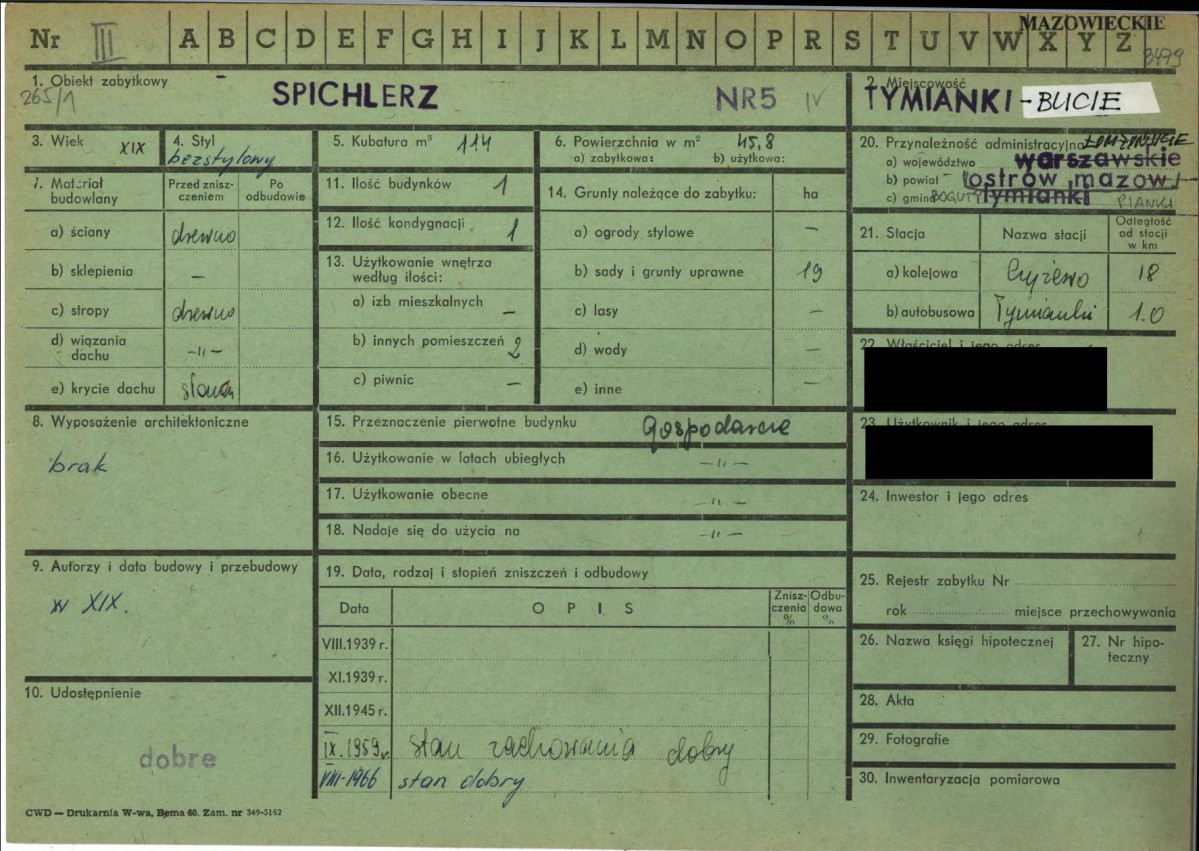 MAZOWIECKIE
Nr III A B C D E F G H I J K L M N O P R S T U V W X Y Z
3479
1. Obiekt zabytkowy
265/1
SPICHLERZ NR5 IV
2. Miejscowość
TYMIANKI-BUCIE
3. Wiek XIX
4. Styl
bezstylowy
5. Kubatura m³ 114
6. Powierzchnia w m² 45,8
a) zabytkowa: b) użytkowa:
20. Przynależność administracyjna ŁOMŻYŃSKIE
a) województwo warszawskie
b) powiat - ostrów mazow.
c) gmina BOGUTY tymianki PIANKI
7. Materiał budowlany
Przed zniszczeniem
Po odbudowie
a) ściany drewno
b) sklepienia –
c) stropy drewno
d) wiązania dachu -"-
e) krycie dachu słoma
11. Ilość budynków 1
12. Ilość kondygnacji 1
13. Użytkowanie wnętrza
według ilości:
a) izb mieszkalnych –
b) innych pomieszczeń 2
c) piwnic –
14. Grunty należące do zabytku: ha
a) ogrody stylowe –
b) sady i grunty uprawne 19
c) lasy –
d) wody –
e) inne –
21. Stacja Nazwa stacji
Odległość
od stacji
w km
a) kolejowa Czyżewo 18
b) autobusowa Tymianki 1.0
22. Właściciel i jego adres
23. Użytkownik i jego adres
24. Inwestor i jego adres
8. Wyposażenie architektoniczne
brak
15. Przeznaczenie pierwotne budynku gospodarcze
16. Użytkowanie w latach ubiegłych -"-
17. Użytkowanie obecne -"-
18. Nadaje się do użycia na -"-
9. Autorzy i data budowy i przebudowy
w XIX.
19. Data, rodzaj i stopień zniszczeń i odbudowy
Data OPIS
Znisz-
czenia
%
Odbu-
dowa
%
VIII.1939 r.
XI.1939 r.
XII.1945 r.
IX.1959 r. stan zachowania dobry
VIII-1966 stan dobry
10. Udostępnienie
dobre
25. Rejestr zabytku Nr
rok miejsce przechowywania
26. Nazwa księgi hipotecznej
27. Nr hipo-
teczny
28. Akta
29. Fotografie
30. Inwentaryzacja pomiarowa
CWD — Drukarnia W-wa, Bema 60. Zam. nr 349-5162